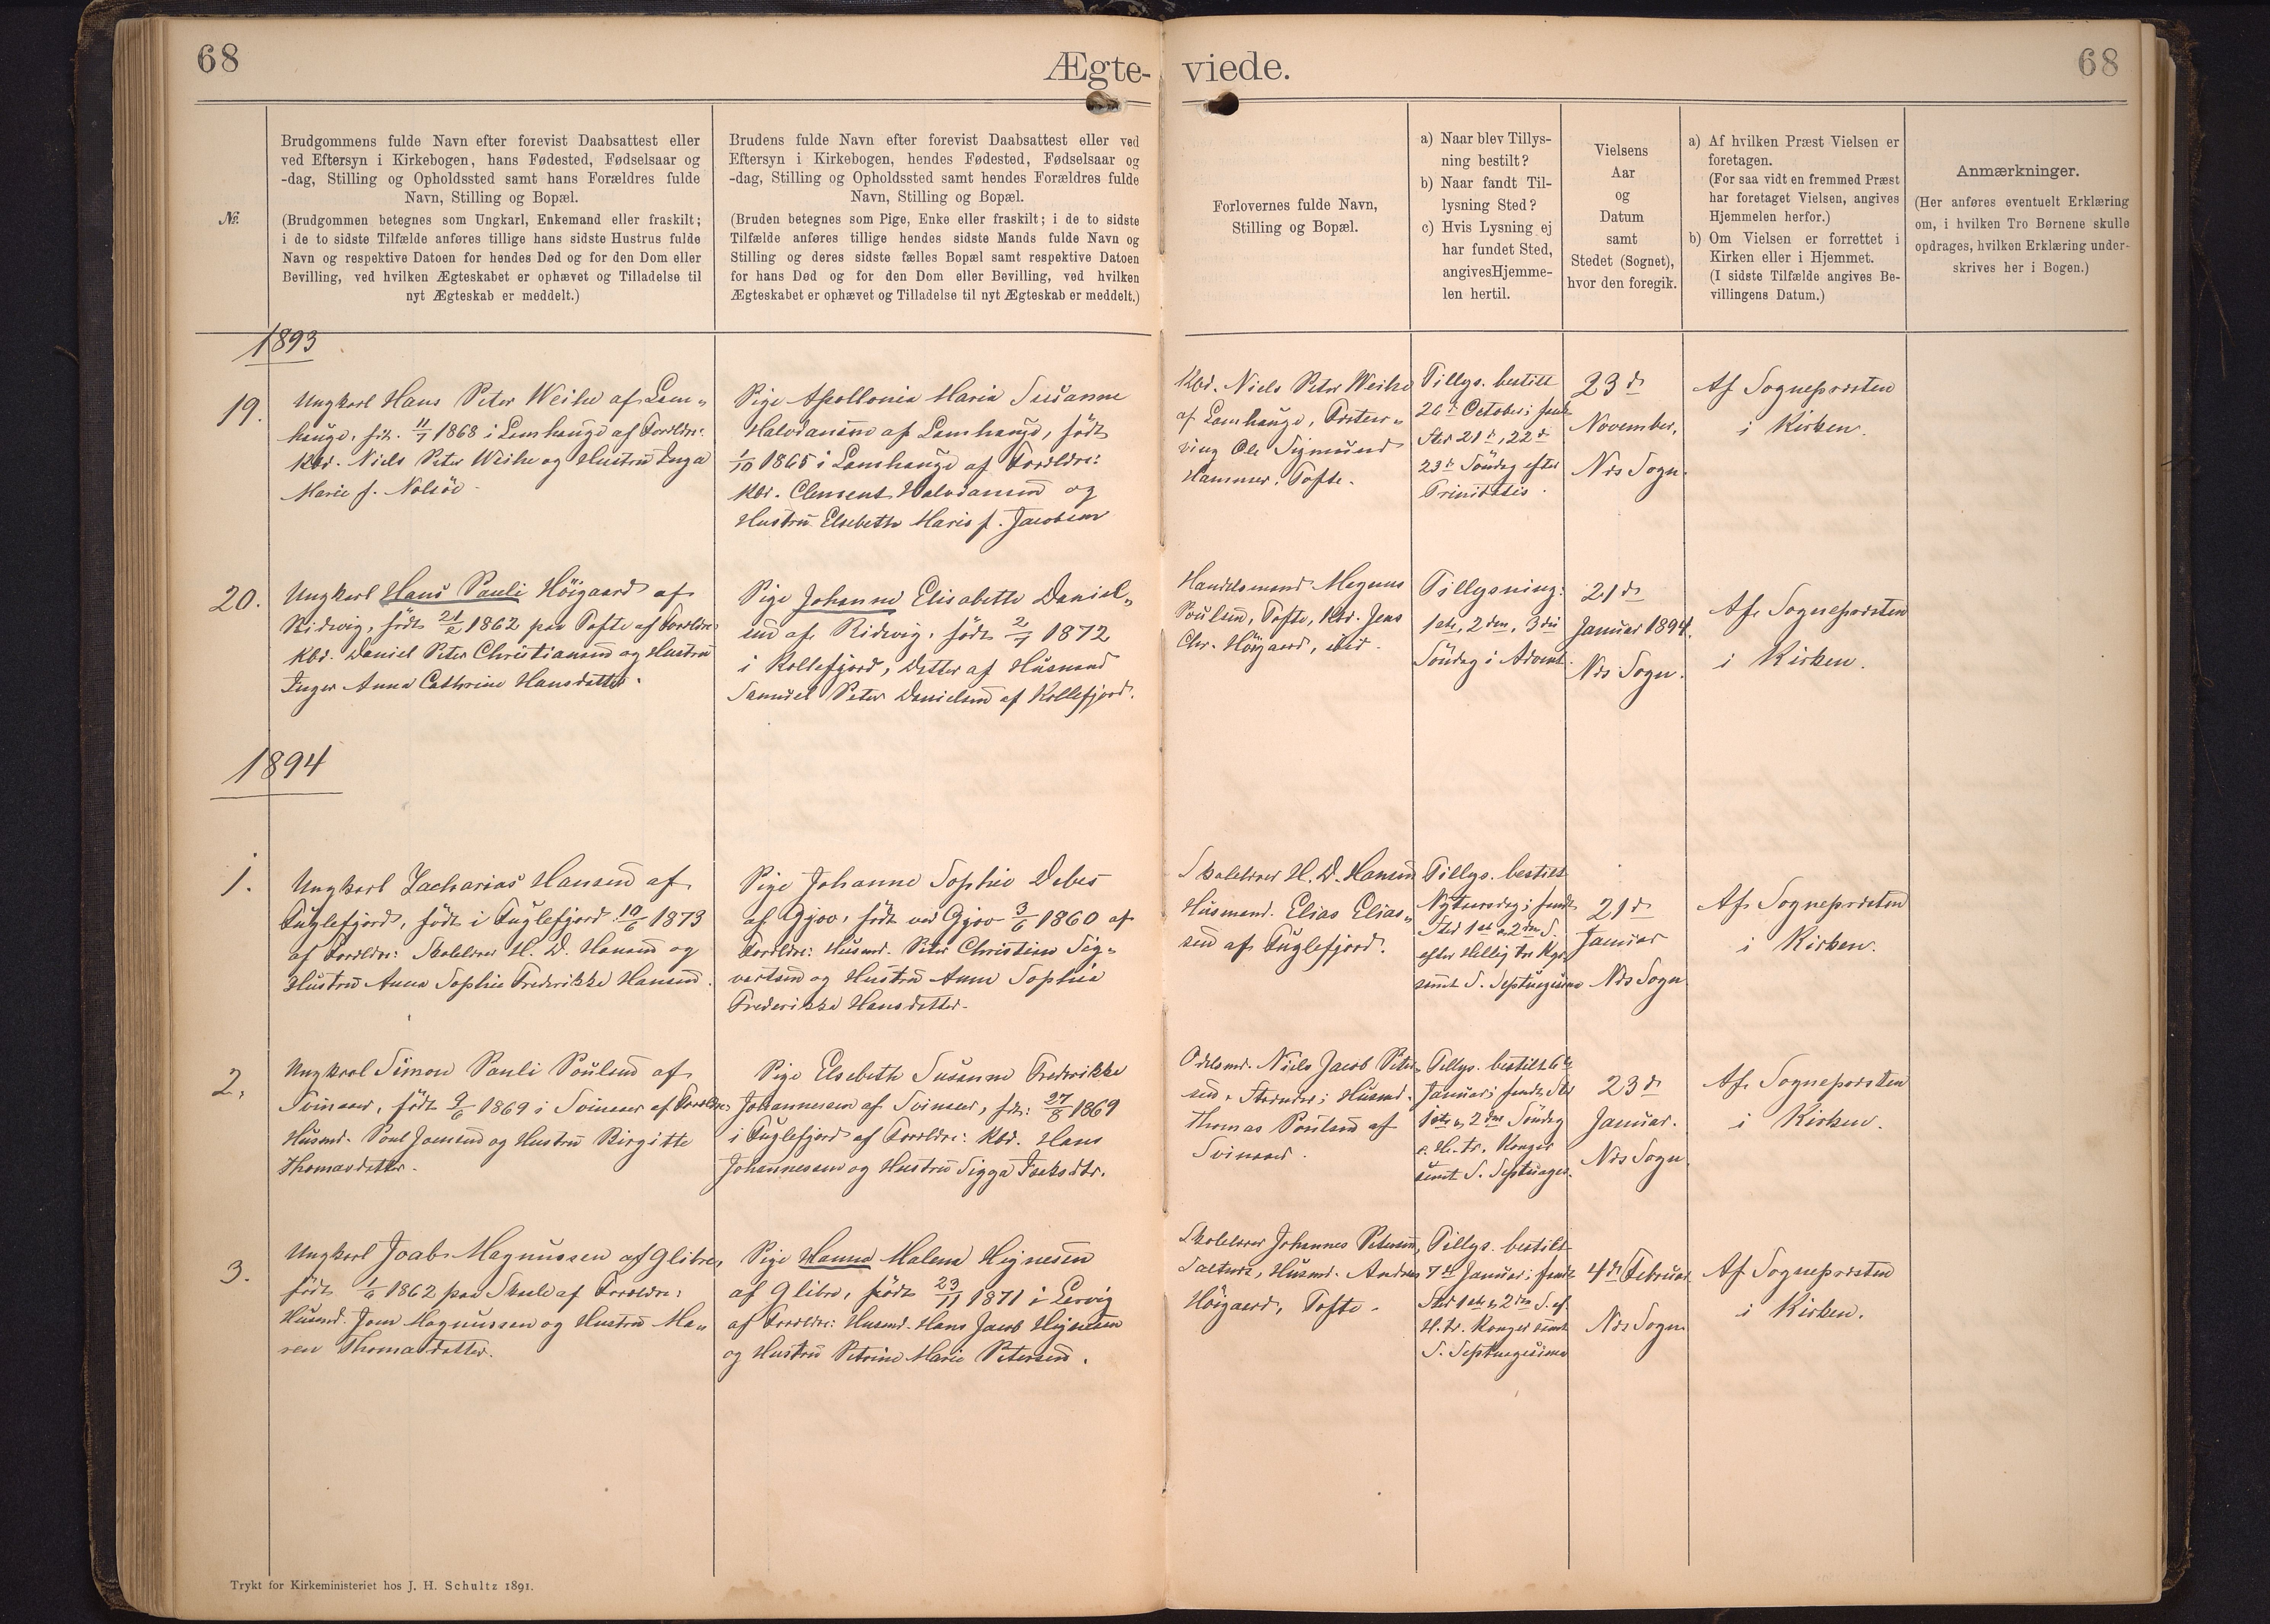 68
Ægte-
viede.
68
№.
Brudgommens fulde Navn efter forevist Daabsattest eller
ved Eftersyn i Kirkebogen, hans Fødested, Fødselsaar og
-dag, Stilling og Opholdssted samt hans Forældres fulde
Navn, Stilling og Bopæl.
(Brudgommen betegnes som Ungkarl, Enkemand eller fraskilt;
i de to sidste Tilfælde anføres tillige hans sidste Hustrus fulde
Navn og respektive Datoen for hendes Død og for den Dom eller
Bevilling, ved hvilken Ægteskabet er ophævet og Tilladelse til
nyt Ægteskab er meddelt.)
Brudens fulde Navn efter forevist Daabsattest eller ved
Eftersyn i Kirkebogen, hendes Fødested, Fødselsaar og
-dag, Stilling og Opholdssted samt hendes Forældres fulde
Navn, Stilling og Bopæl.
(Bruden betegnes som Pige, Enke eller fraskilt; i de to sidste
Tilfælde anføres tillige hendes sidste Mands fulde Navn og
Stilling og deres sidste fælles Bopæl samt respektive Datoen
for hans Død og for den Dom eller Bevilling, ved hvilken
Ægteskabet er ophævet og Tilladelse til nyt Ægteskab er meddelt.)
Forlovernes fulde Navn,
Stilling og Bopæl.
a) Naar blev Tillys-
ning bestilt?
b) Naar fandt Til-
lysning Sted?
c) Hvis Lysning ej
har fundet Sted,
angives Hjemme-
len hertil.
Vielsens
Aar
og
Datum
samt
Stedet (Sognet),
hvor den foregik.
a) Af hvilken Præst Vielsen er
foretagen.
(For saa vidt en fremmed Præst
har foretaget Vielsen, angives
Hjemmelen herfor.)
b) Om Vielsen er forrettet i
Kirken eller i Hjemmet.
(I sidste Tilfælde angives Be-
villingens Datum.)
Anmærkninger.
(Her anføres eventuelt Erklæring
om, i hvilken Tro Børnene skulle
opdrages, hvilken Erklæring under-
skrives her i Bogen.)
1893
19.
Ungkarl Hans Peter Weihe af Lam-
hauge, fdt. 11/7 1868 i Lamhauge af Forældre:
Kbd. Niels Peter Weihe og Hustru Inga
Marie f. Nolsöe
Pige Apollonia Maria Susanne
Halvdansen af Lamhauge, født
1/10 1865 i Lamhauge af Forældre:
Kbd. Clement Halvdansen og
Hustru Elsebeth Maria f. Jacobsen
Kbd. Niels Peter Weihe
af Lamhauge,
Ole Sigmund
Hammer, Tofte.
Tillys. bestilt
26de October; fandt
Sted 21de, 22de
23de Söndag efter
Trinitatis.
23de
November.
Nds Sogn.
Af Sognepræsten
i Kirken.
20.
Ungkarl Hans Pauli Höigaard af
Ridevig, født 21/2 1862 paa Tofte af Forældre:
Kbd. Daniel Peter Christiansen og Hustru
Inger Anna Cathrine Hansdatter.
Pige Johanne Elisabeth Daniel-
sen af Ridevig, født 2/7 1872
i Kollefjord, Datter af Husmand
Samuel Peter Danielsen af Kollefjord.
Handelsmand Magnus
Poulsen, Tofte, Kbd. Jens
Chr. Höigaard, ibid.
Tillysning:
1ste, 2den, 3die
Söndag i Advent.
21de
Januar 1894.
Nds Sogn.
Af Sognepræsten
i Kirken.
1894
1.
Ungkarl Zacharias Hansen af
Fuglefjord, født i Fuglefjord 10/6 1873
af Forældre: Skolelærer H. D. Hansen og
Hustru Anna Sophie Frederikke Hansen.
Pige Johanne Sophie Debes
af Gjov, født ved Gjov 3/6 1860 af
Forældre: Husmd. Peter Christian Sig-
vertsen og Hustru Anne Sophia
Frederikke Hansdatter.
Skolelærer H. D. Hansen
Husmand Elias Elias-
sen af Fuglefjord.
Tillys. bestilt
Nytaarsdag; fandt
Sted 1ste & 2den S.
efter Hellig tre Kgr.
samt S. Septuagesima
21de
Januar
Nds Sogn
Af Sognepræsten
i Kirken.
2.
Ungkarl Simon Pauli Poulsen af
Svinaaer, født 9/6 1869 i Svinaaer af Forældre:
Husmd. Poul Joensen og Hustru Birgitte
Thomasdatter.
Pige Elsebeth Susanne Frederikke
Johannesen af Svinaaer, fdt: 27/8 1869
i Fuglefjord af Forældre: Kbd. Hans
Johannesen og Hustru Sigga Isaksdtr.
Odelsmd. Niels Jacob Peter-
sen, Husmd.
Thomas Poulsen af
Svinaaer.
Tillys. bestilt 6te
Januar; fandt Sted
1ste & 2den Söndag
e. H. tr. Konger
samt S. Septuages.
23de
Januar.
Nds Sogn.
Af Sognepræsten
i Kirken.
3.
Ungkarl Joab Magnussen af Glibre,
født 1/6 1862 paa Skaale af Forældre:
Husmd. Joen Magnussen og Hustru Ma-
ren Thomasdatter.
Pige Hanna Malena Hejnesen
af Glibre, født 23/11 1871 i Lervig
af Forældre: Husmd. Hans Jacob Hejnesen
og Hustru Petrine Marie Petersen.
Skolelærer Johannes Petersen,
Saltnæs, Husmd. Andreas
Höigaard, Tofte.
Tillys. bestilt
7de Januar; fandt
Sted 1ste & 2den S. ef.
H. tr. Konger samt
S. Septuagesima
4de Februar
Nds Sogn
Af Sognepræsten
i Kirken.
Trykt for Kirkeministeriet hos J. H. Schultz 1891.